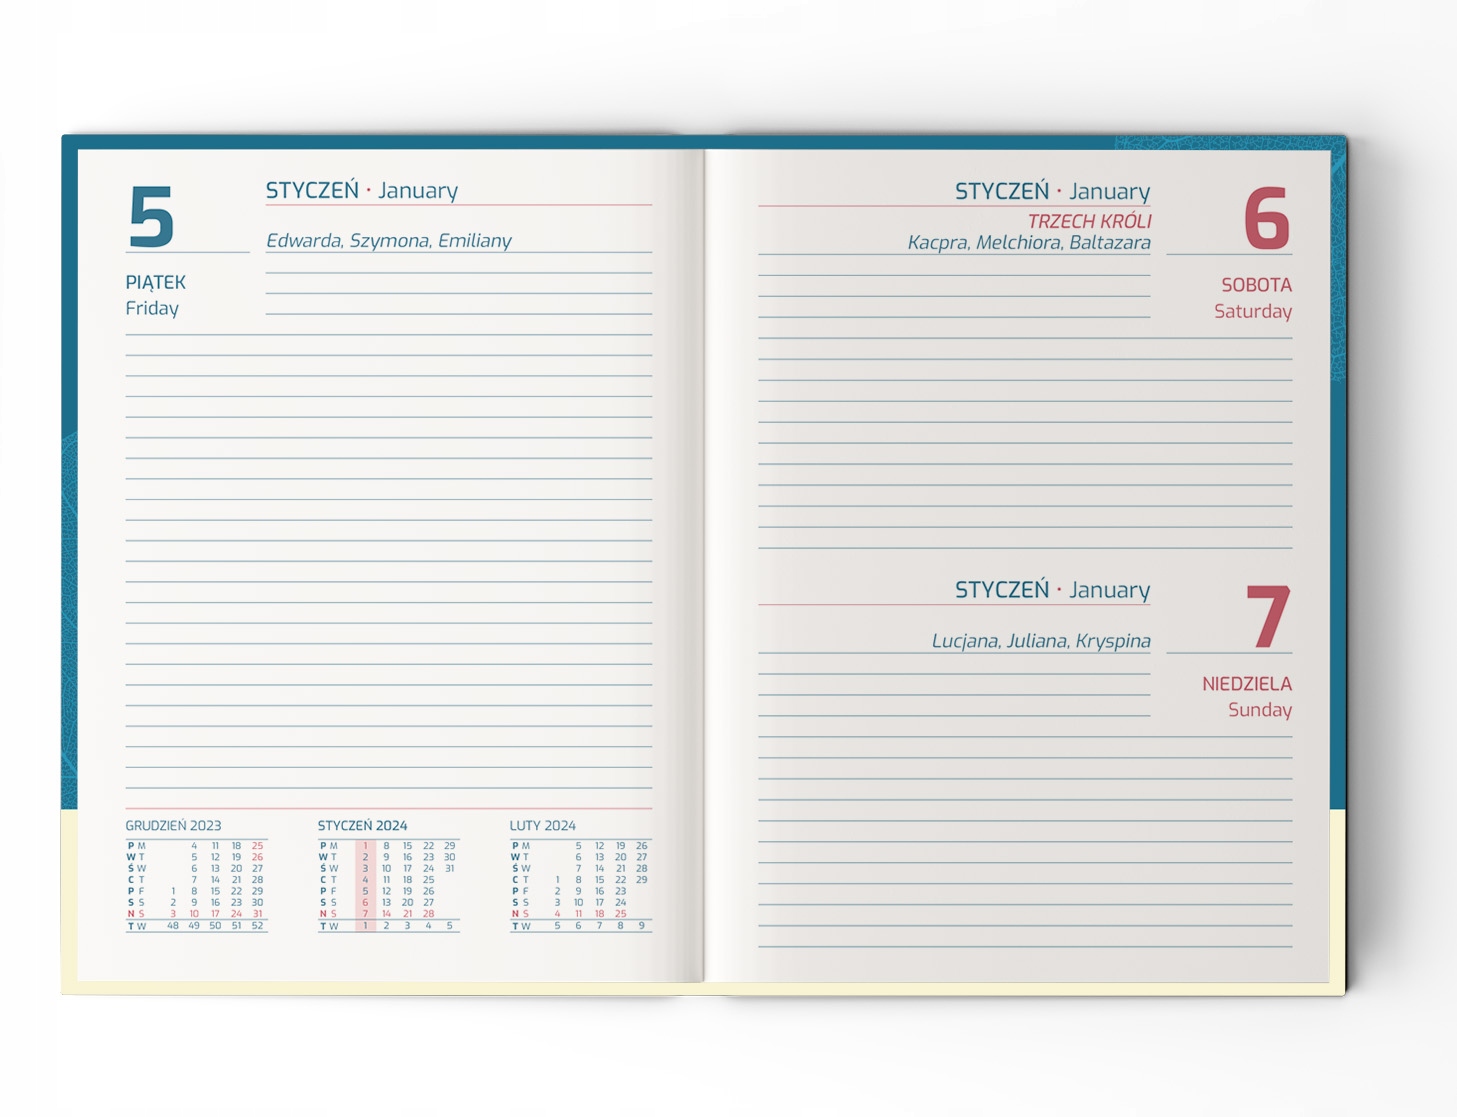 5
STYCZEŃ · January
Edwarda, Szymona, Emiliany
PIĄTEK
Friday
GRUDZIEŃ 2023
P M 4 11 18 25
W T 5 12 19 26
Ś W 6 13 20 27
C T 7 14 21 28
P F 1 8 15 22 29
S S 2 9 16 23 30
N S 3 10 17 24 31
T W 48 49 50 51 52
STYCZEŃ 2024
P M 1 8 15 22 29
W T 2 9 16 23 30
Ś W 3 10 17 24 31
C T 4 11 18 25
P F 5 12 19 26
S S 6 13 20 27
N S 7 14 21 28
T W 1 2 3 4 5
LUTY 2024
P M 5 12 19 26
W T 6 13 20 27
Ś W 7 14 21 28
C T 1 8 15 22 29
P F 2 9 16 23
S S 3 10 17 24
N S 4 11 18 25
T W 5 6 7 8 9
STYCZEŃ · January
6
TRZECH KRÓLI
Kacpra, Melchiora, Baltazara
SOBOTA
Saturday
STYCZEŃ · January
7
Lucjana, Juliana, Kryspina
NIEDZIELA
Sunday